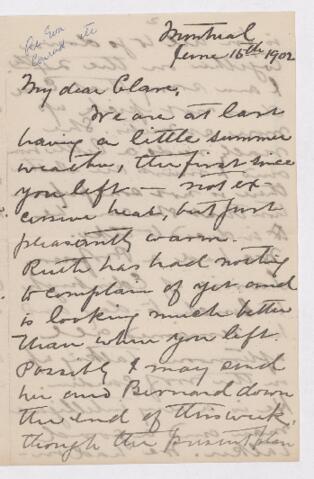 Montreal
June 16th 1902
My dear Clare,
We are at last
having a little summer
weather, the first since
you left — not ex
cessive heat, but just
pleasantly warm.
Ruth has had nothing
to complain of yet and
is looking much better
than when you left.
Possibly I may send
her and Bernard down
the end of this week,
though the present plan